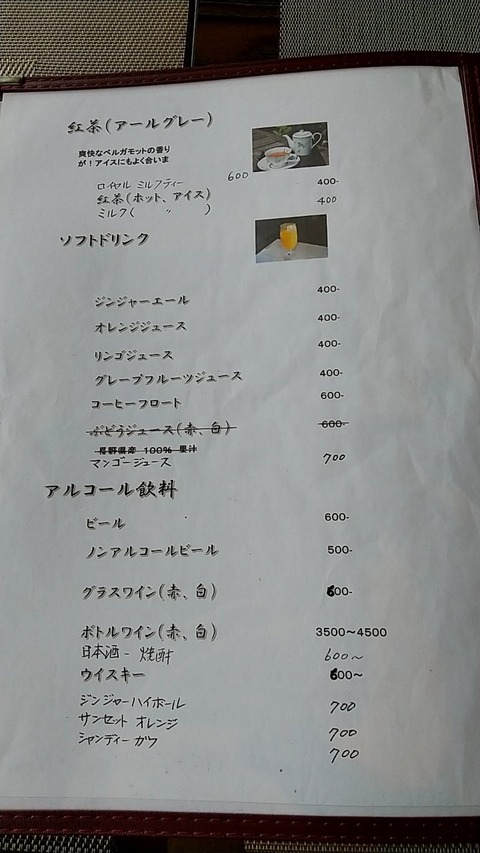 紅茶(アールグレー)
爽快なベルガモットの香り
が!アイスにもよく合いま
ロイヤル ミルクティー 600
紅茶(ホット、アイス) 400-
ミルク( 〃 ) 400
ソフトドリンク
ジンジャーエール 400-
オレンジジュース 400-
リンゴジュース 400-
グレープフルーツジュース 400-
コーヒーフロート 600-
ぶどうジュース(赤、白) 600-
長野県産 100% 果汁
マンゴージュース 700
アルコール飲料
ビール 600-
ノンアルコールビール 500-
グラスワイン(赤、白) 600-
ボトルワイン(赤、白) 3500〜4500
日本酒- 焼酎 600〜
ウイスキー 600〜
ジンジャーハイボール 700
サンセット オレンジ 700
シャンディーガフ 700